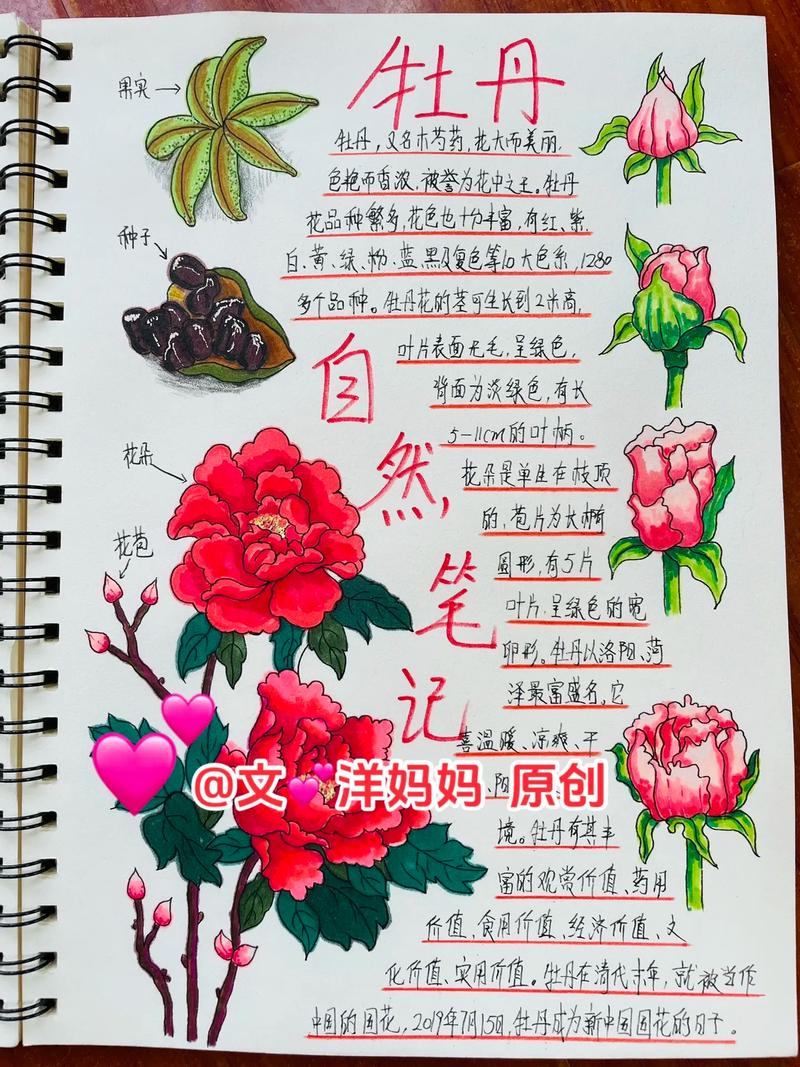 牡丹
果实
牡丹，又名木芍药，花大而美丽，
色艳而香浓，被誉为花中之王。牡丹
花品种繁多，花色也十分丰富，有红、紫、
种子
白、黄、绿、粉、蓝、黑及复色等10大色系，1280
多个品种。牡丹花的茎可生长到2米高，
自然，笔记
叶片表面无毛，呈绿色，
背面为淡绿色，有长
5-11cm的叶柄。
花朵
花朵是单生在枝顶
的，苞片为长椭
花苞
圆形，有5片
叶片，呈绿色的宽
卵形。牡丹以洛阳、菏
泽最富盛名，它
喜温暖、凉爽、干
@文洋妈妈 原创
、阳
境。牡丹有其丰
富的观赏价值、药用
价值、食用价值、经济价值、文
化价值、实用价值。牡丹在清代末年，就被当作
中国的国花，2019年7月15日，牡丹成为新中国国花的日子。